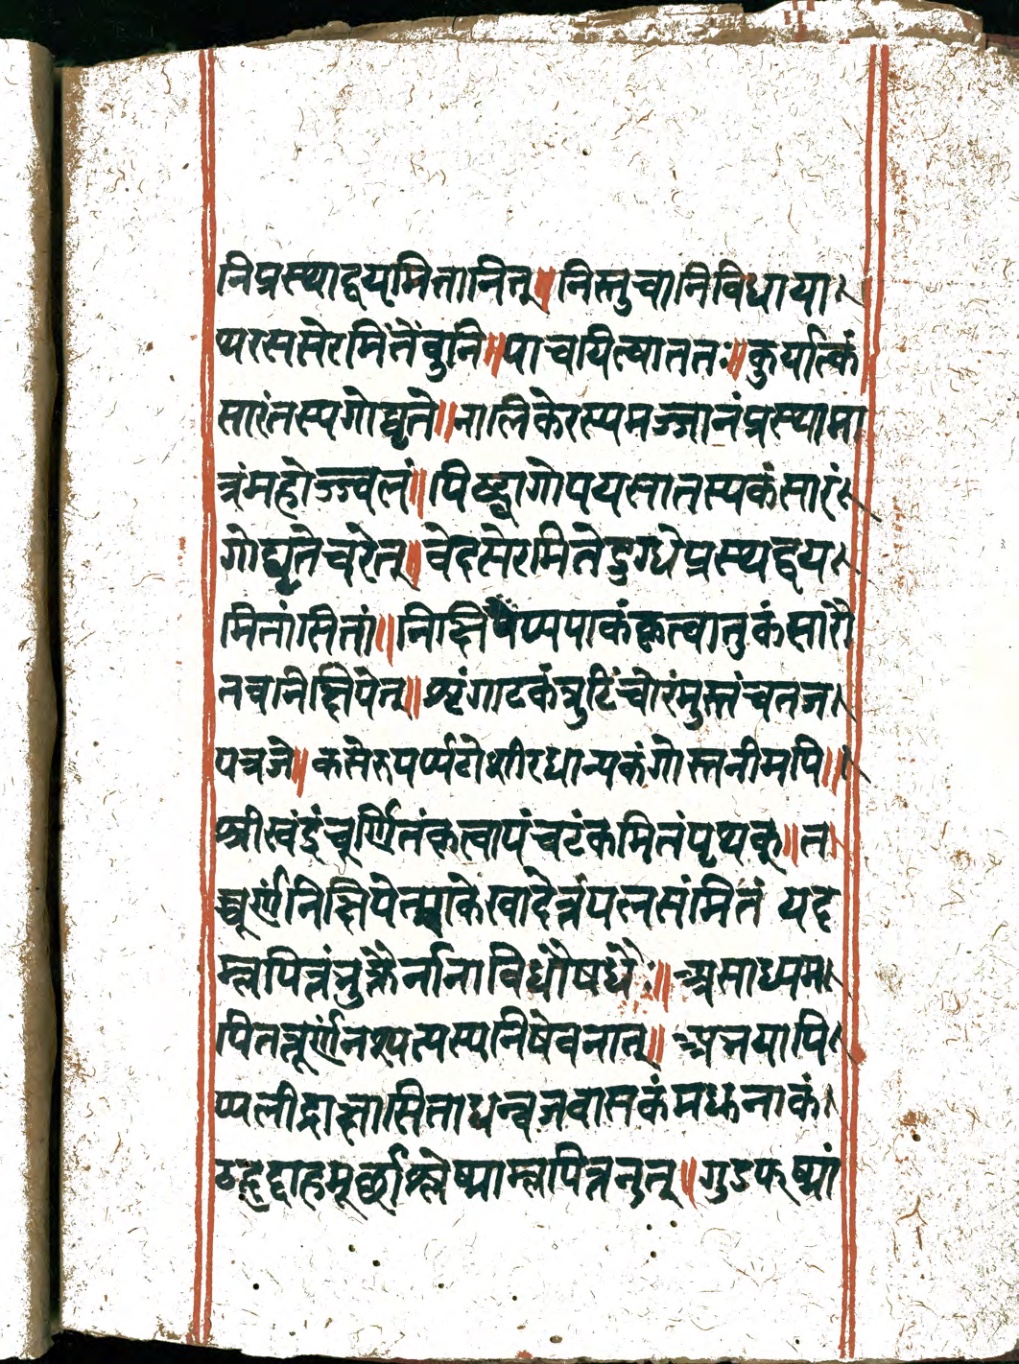 निप्रस्थाद्वयमितानितु॥निस्तुचानिविधाया
थरससेरमितेंवुनि॥पाचयित्वाततः॥कुर्यात्कं
सारंतस्यगोघृते॥नालिकेरस्यमज्जानंप्रस्थामा
त्रंमहोज्ज्वलं॥पिष्ट्वागोपयसातस्यकंसारं
गोघृतेचरेत्॥वेदसेरमितेदुग्धेप्रस्थद्वय
मितांसितां॥निक्षिप्यपाकंकृत्वातुकंसारौ
तवनिक्षिपेत्॥शृंगाटकंत्रुटिंचोरंमुस्तंचतज
पत्रजे॥कसेरुपर्प्पटोशीरधान्यकंगोस्तनीमपि॥
श्रीखंडंचूर्णितंकृत्वापंचटंकमितंपृथक्॥त
च्चूर्णंनिक्षिपेत्पाकेखादेत्रंपलसंमितं यद
म्लपित्तंनुक्तैर्नानाविधौषधैः॥असाध्यम
पितत्तूर्णंनश्यत्यस्यनिषेवनात्॥अभयापि
प्पलीद्राक्षासिताधन्वजवासकंमधुनाकं
ठहृद्दाहमूर्छाश्लेष्माम्लपित्तनुत्॥गुडकूष्मां